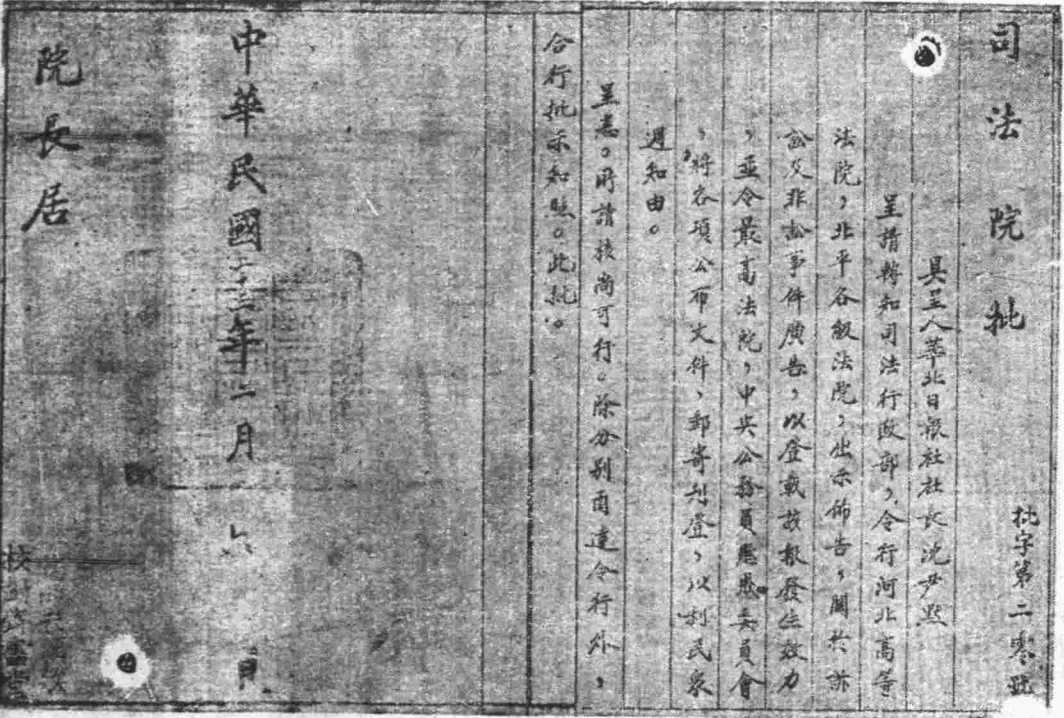 司法院批
批字第二零號
具呈人華北日報社社長沈尹默
呈請轉知司法行政部,令行河北高等
法院,北平各級法院,出示佈告,關於訴
訟及非訟事件廣告,以登載該報發生效力
,並令最高法院,中央公務員懲戒委員會
,將各項公布文件,郵寄刊登,以利民眾
週知由。
呈悉。所請核尚可行。除分別函達令行外,
合行批示知照。此批。
中華民國二十三年二月六日
院長居